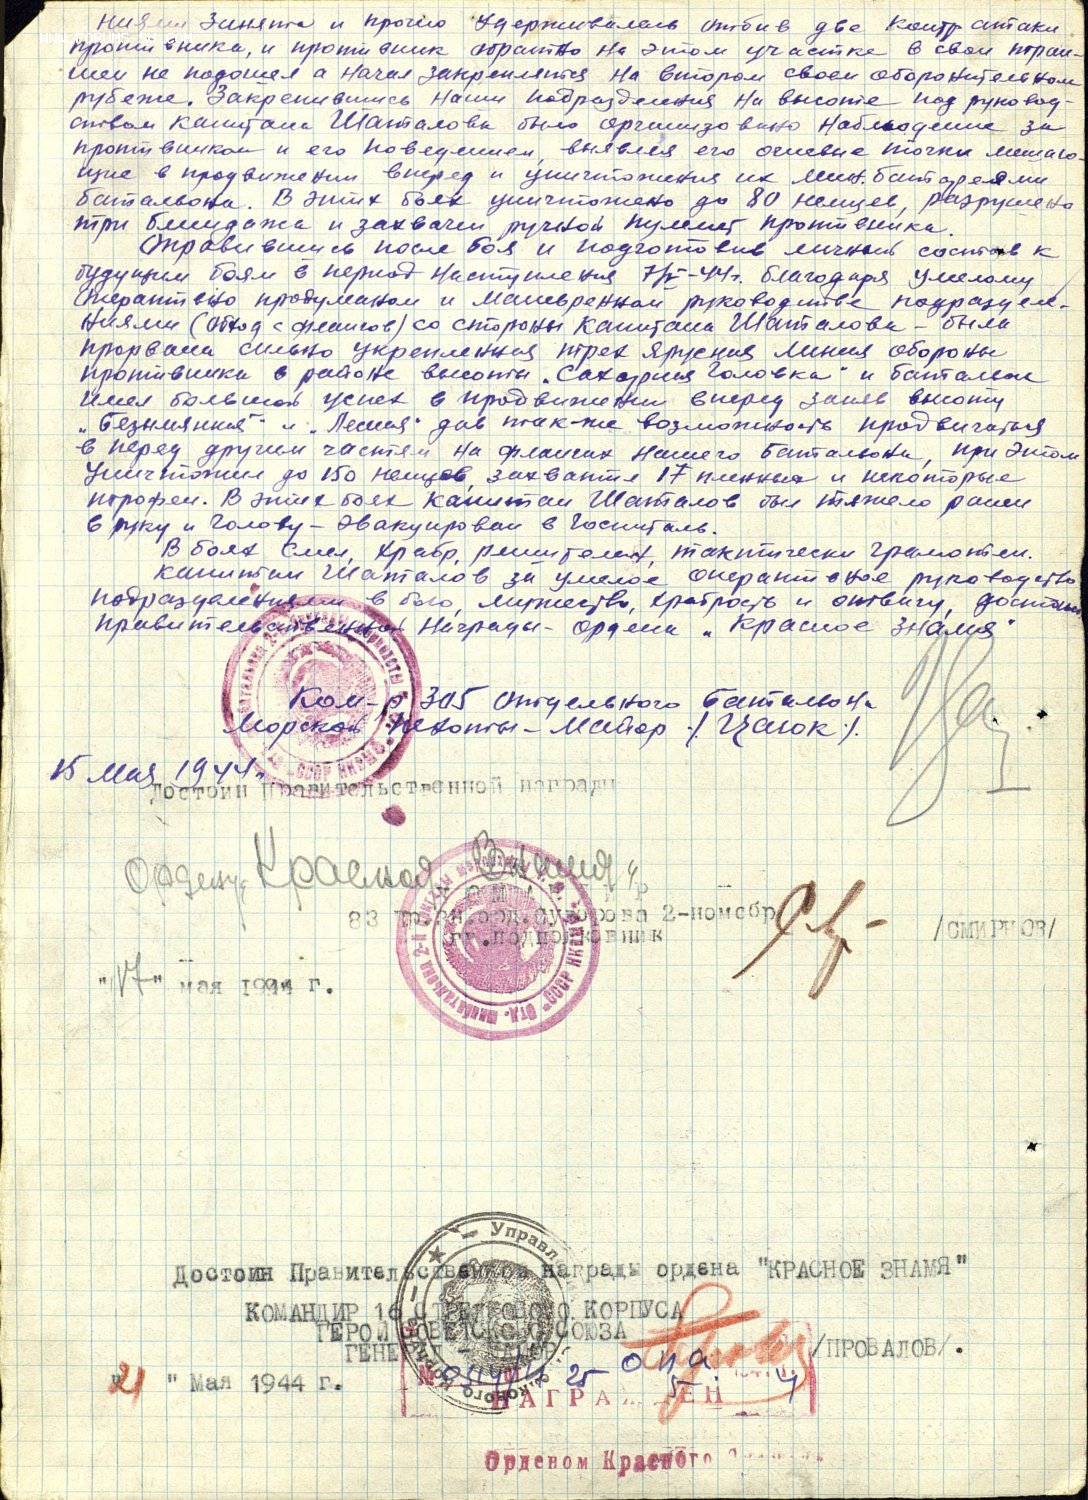 ниями занята и прочно удерживалась отбив две контратаки
противника, и противник обратно на этом участке в свои тран-
шеи не подошел а начал закрепляться на втором своем оборонительном
рубеже. Закрепившись наши подразделения на высоте под руковод-
ством капитана Шаталова было организовано наблюдение за
противником и его поведением, выявляя его огневые точки мешаю-
щие в продвижении вперед и уничтожения их мин. батареями
батальона. В этих боях уничтожено до 80 немцев, разрушено
три блиндажа и захвачен ручной пулемет противника.
Оправившись после боя и подготовив личный состав к
будущим боям в период наступления 7/V-44г. благодаря умелому
оперативно продуманом и маневренном руководстве подразделе-
ниями (обход с флангов) со стороны капитана Шаталова - была
прорвана сильно укрепленная трех ярусная линия обороны
противника в районе высоты "Сахарная Головка" и батальон
имел большой успех в продвижении вперед заняв высоту
"Безымянная" и "Лесная" дав так-же возможность продвигаться
в перед другим частям на флангах нашего батальона, при этом
уничтожил до 150 немцев, захватил 17 пленных и некоторые
трофеи. В этих боях капитан Шаталов был тяжело ранен
в руку и голову - эвакуирован в госпиталь.
В боях смел, храбр, решителен, тактически грамотен.
Капитан Шаталов за умелое оперативное руководство
подразделениями в бою, мужество, храбрость и отвагу, достоин
правительственной награды - ордена "Красное Знамя"
Ком-р 305 отдельного батальона
Морской пехоты - майор /Цаюк/.
15 мая 1944г.
Достоин Правительственной награды
Ордену "Красное Знамя"
83 бр.
2-й МСбр
гв. подполковник /СМИРНОВ/
"17" мая 1944 г.
Управл
Достоин Правительственной награды ордена "КРАСНОЕ ЗНАМЯ"
КОМАНДИР 16 СТРЕЛКОВОГО КОРПУСА
ГЕРОЙ СОВЕТСКОГО СОЮЗА
ГЕНЕРАЛ - МАЙОР /ПРОВАЛОВ/.
"21" Мая 1944 г.
НАГРАЖДЕН
Орденом Красного